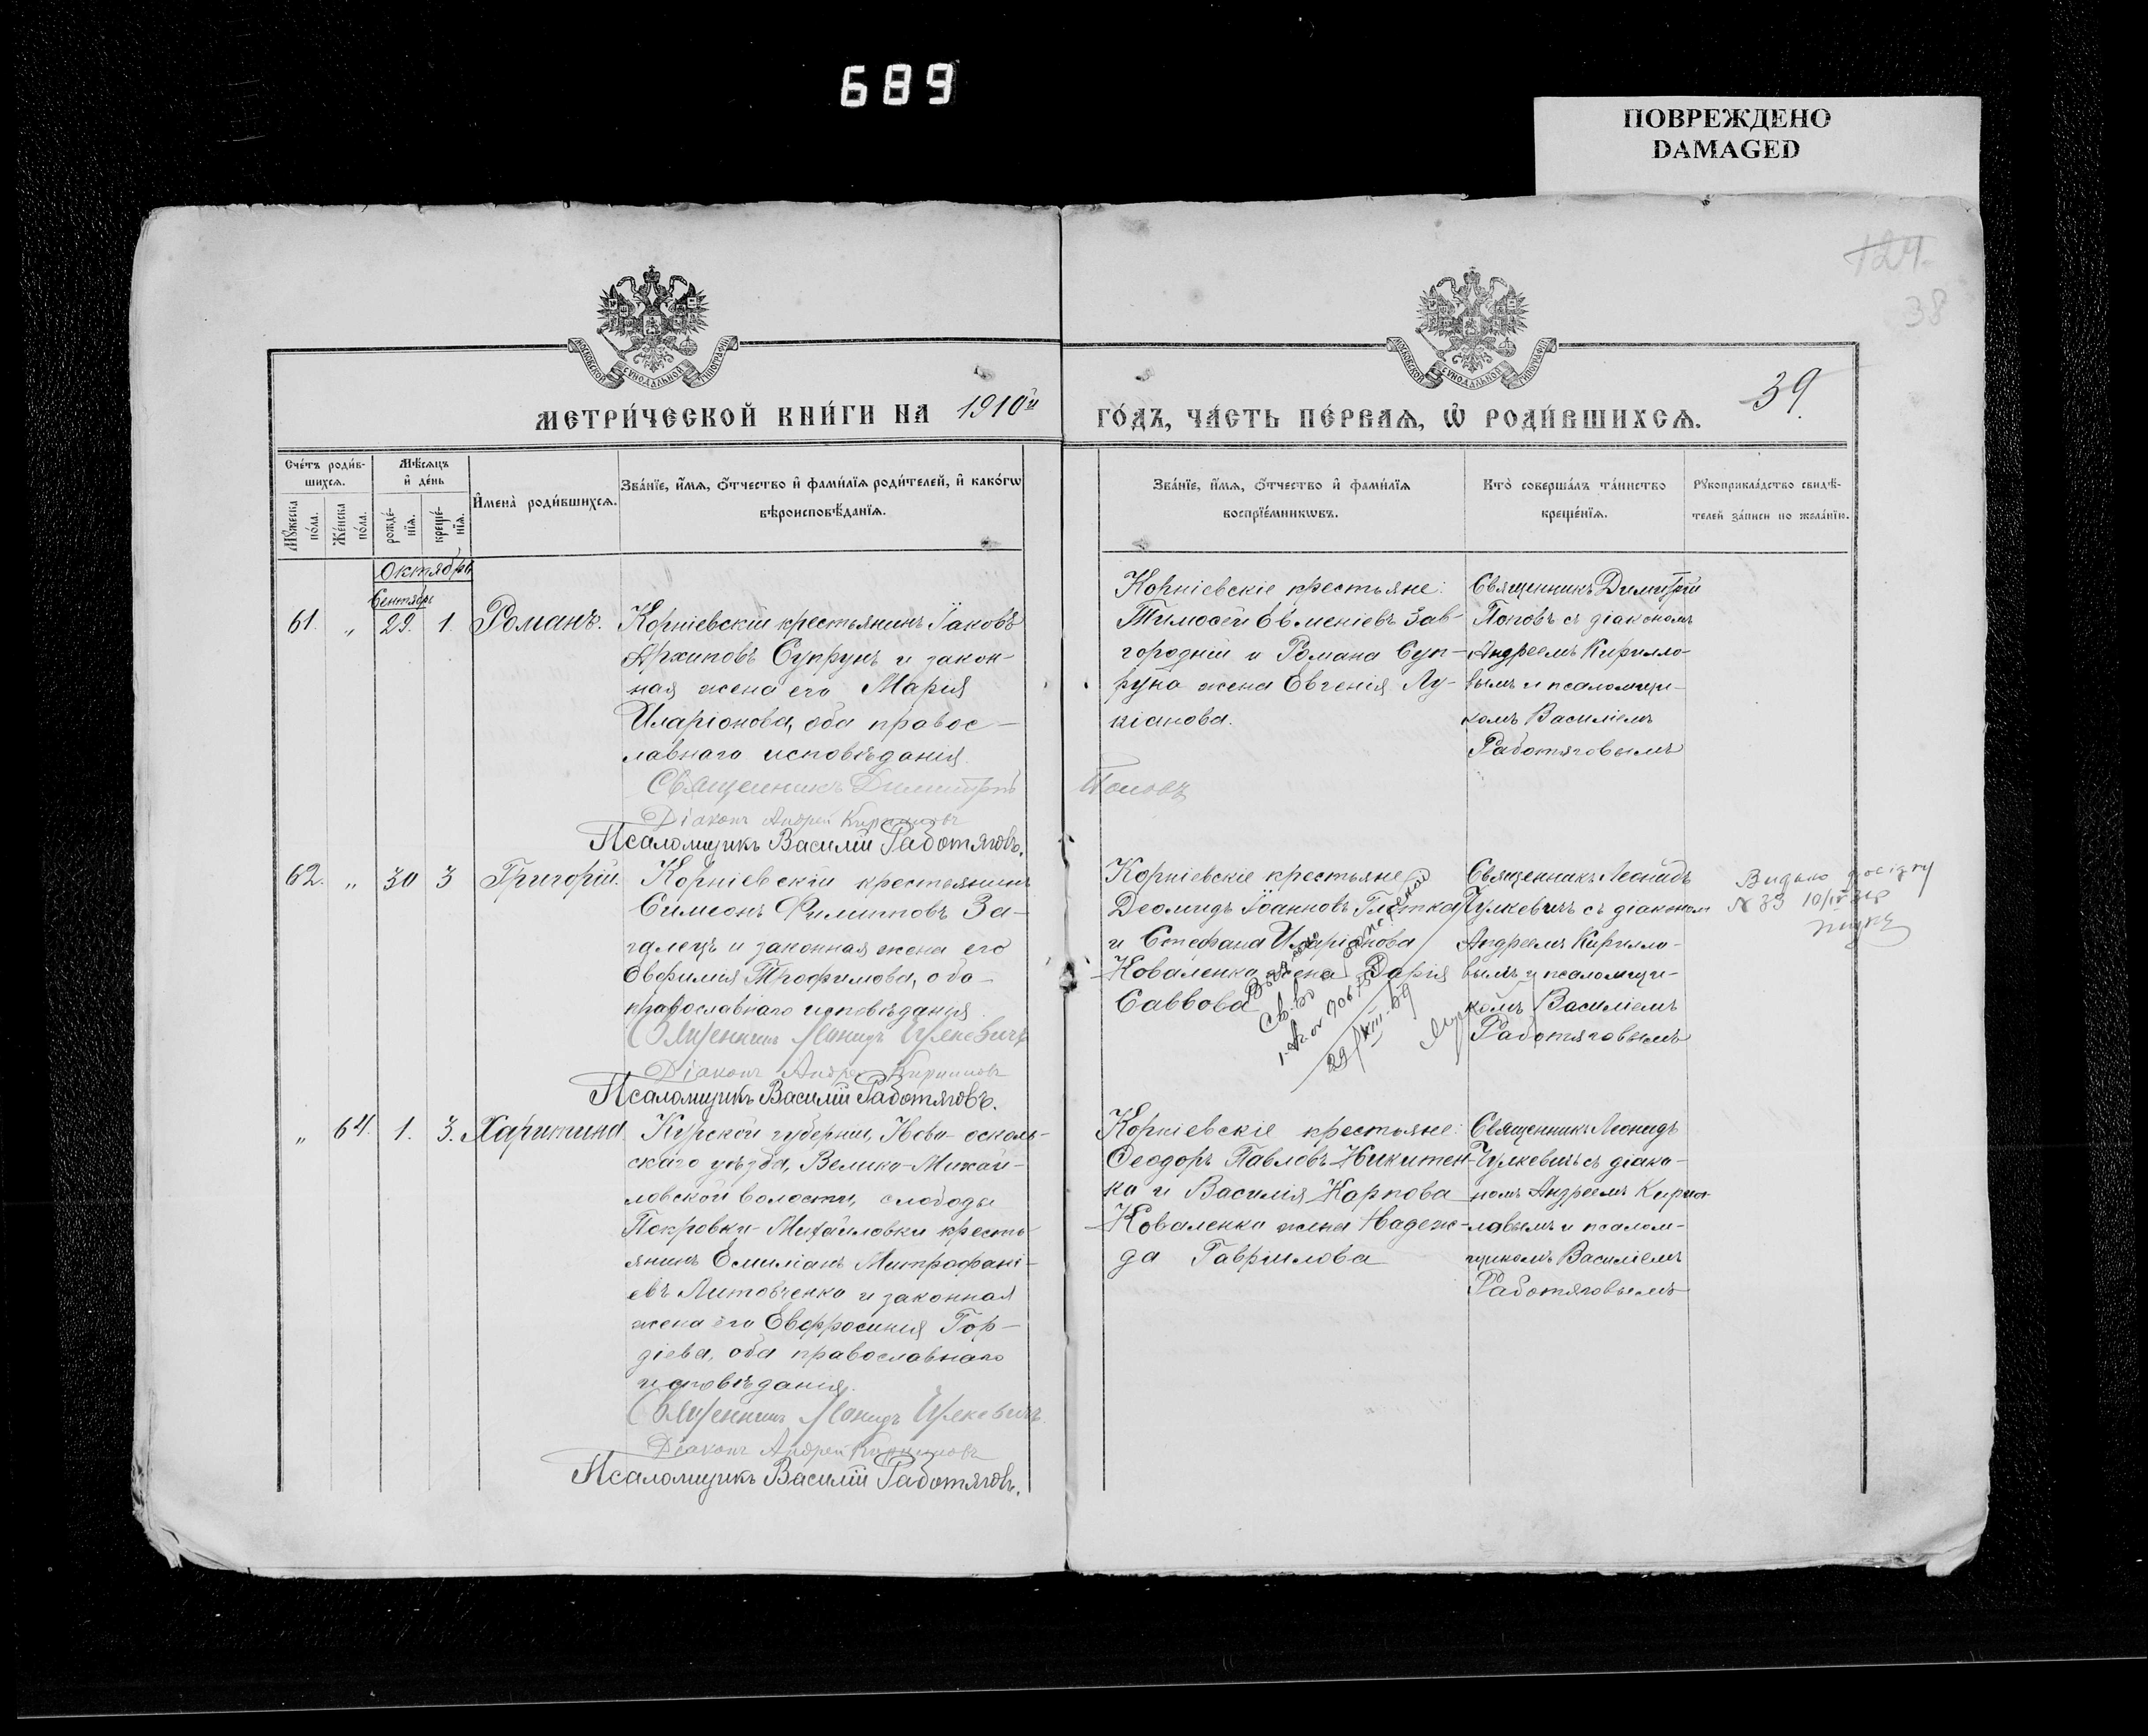 689
ПОВРЕЖДЕНО
DAMAGED
124
38
МОСКОВСКОЙ СѴНОДАЛЬНОЙ ТИПОГРАФІИ
МОСКОВСКОЙ СѴНОДАЛЬНОЙ ТИПОГРАФІИ
МЕТРИ́ЧЕСКОЙ КНИ́ГИ НА 1910й
ГО́ДЪ, ЧА́СТЬ ПЕ́РВАѦ, Ѡ҆ РОДИ́ВШИХСѦ. 39.
Сче́тъ роди́в-
шихсѧ.
Мꙋ́жеска по́ла.
Же́нска по́ла.
Мѣ́сѧцъ
и҆ де́нь
рожде́-
нїѧ.
креще́-
нїѧ.
И҆мена̀ роди́вшихсѧ.
Зва́нїе, и҆́мѧ, ѻ҆́тчество и҆ фами́лїѧ роди́телей, и҆ како́гѡ
вѣроисповѣ́данїѧ.
Зва́нїе, и҆́мѧ, ѻ҆́тчество и҆ фами́лїѧ
воспрїе́мникѡвъ.
Кто̀ соверша́лъ та́инство
креще́нїѧ.
Рꙋкоприкла́дство свидѣ́-
телей за́писи по жела́нїю.
Октябрь
Сентябрь
61. „ 29. 1. Романъ.
Корніевскій крестьянинъ Іаковъ
Архиповъ Супрунъ и закон-
ная жена его Марія
Иларіонова, оба правос-
лавнаго исповѣданія.
Священникъ Димитрій
Попов
Діаконъ Андрей Кирилловъ
Псаломщикъ Василій Работяговъ.
Корніевскіе крестьяне:
Тимоѳей Евменіевъ Зав-
городній и Романа Суп-
руна жена Евгенія Лу-
кіанова.
Священникъ Димитрій
Поповъ съ діакономъ
Андреемъ Кирилло-
вымъ и псаломщи-
комъ Василіемъ
Работяговымъ
62. „ 30 3 Григорій.
Корніевскій крестьянинъ
Симеонъ Филипповъ За-
галецъ и законная жена его
Евфимія Трофимова, оба
православнаго исповѣданія.
Священникъ Леонидъ Чулкевичъ
Діаконъ Андрей Кирилловъ
Псаломщикъ Василій Работяговъ.
Корніевскіе крестьяне
Деомидъ Іоанновъ
и Стефана Иларіонова
Коваленка жена Дарія
Саввова
Священникъ Леонидъ
Чулкевичъ съ діаконом
Андреемъ Кирилло-
вымъ и псаломщи-
комъ Василіемъ
Работяговымъ
Видано
№ 39
„ 64. 1. 3. Харитина
Курской губерніи, Ново-осколь-
скаго уѣзда, Велико-Михай-
ловской волости, слободы
Покровки-Михайловки кресть-
янинъ Емиліанъ Митрофані-
евъ Литовченко и законная
жена его Евфросинія Гор-
діева, оба православнаго
исповѣданія.
Священникъ Леонидъ Чулкевичъ.
Діаконъ Андрей Кирилловъ
Псаломщикъ Василій Работяговъ.
Корніевскіе крестьяне:
Ѳеодоръ Павловъ Никитен-
ко и Василія Карпова
Коваленка жена Надеж-
да Гавріилова
Священникъ Леонидъ
Чулкевичъ съ діако-
номъ Андреемъ Кирил-
ловымъ и псалом-
щикомъ Василіемъ
Работяговымъ